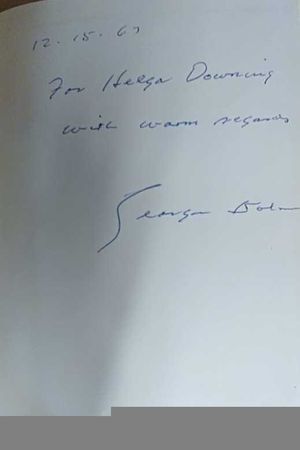 12.15.67
For Helga Downing
with warm regards
George